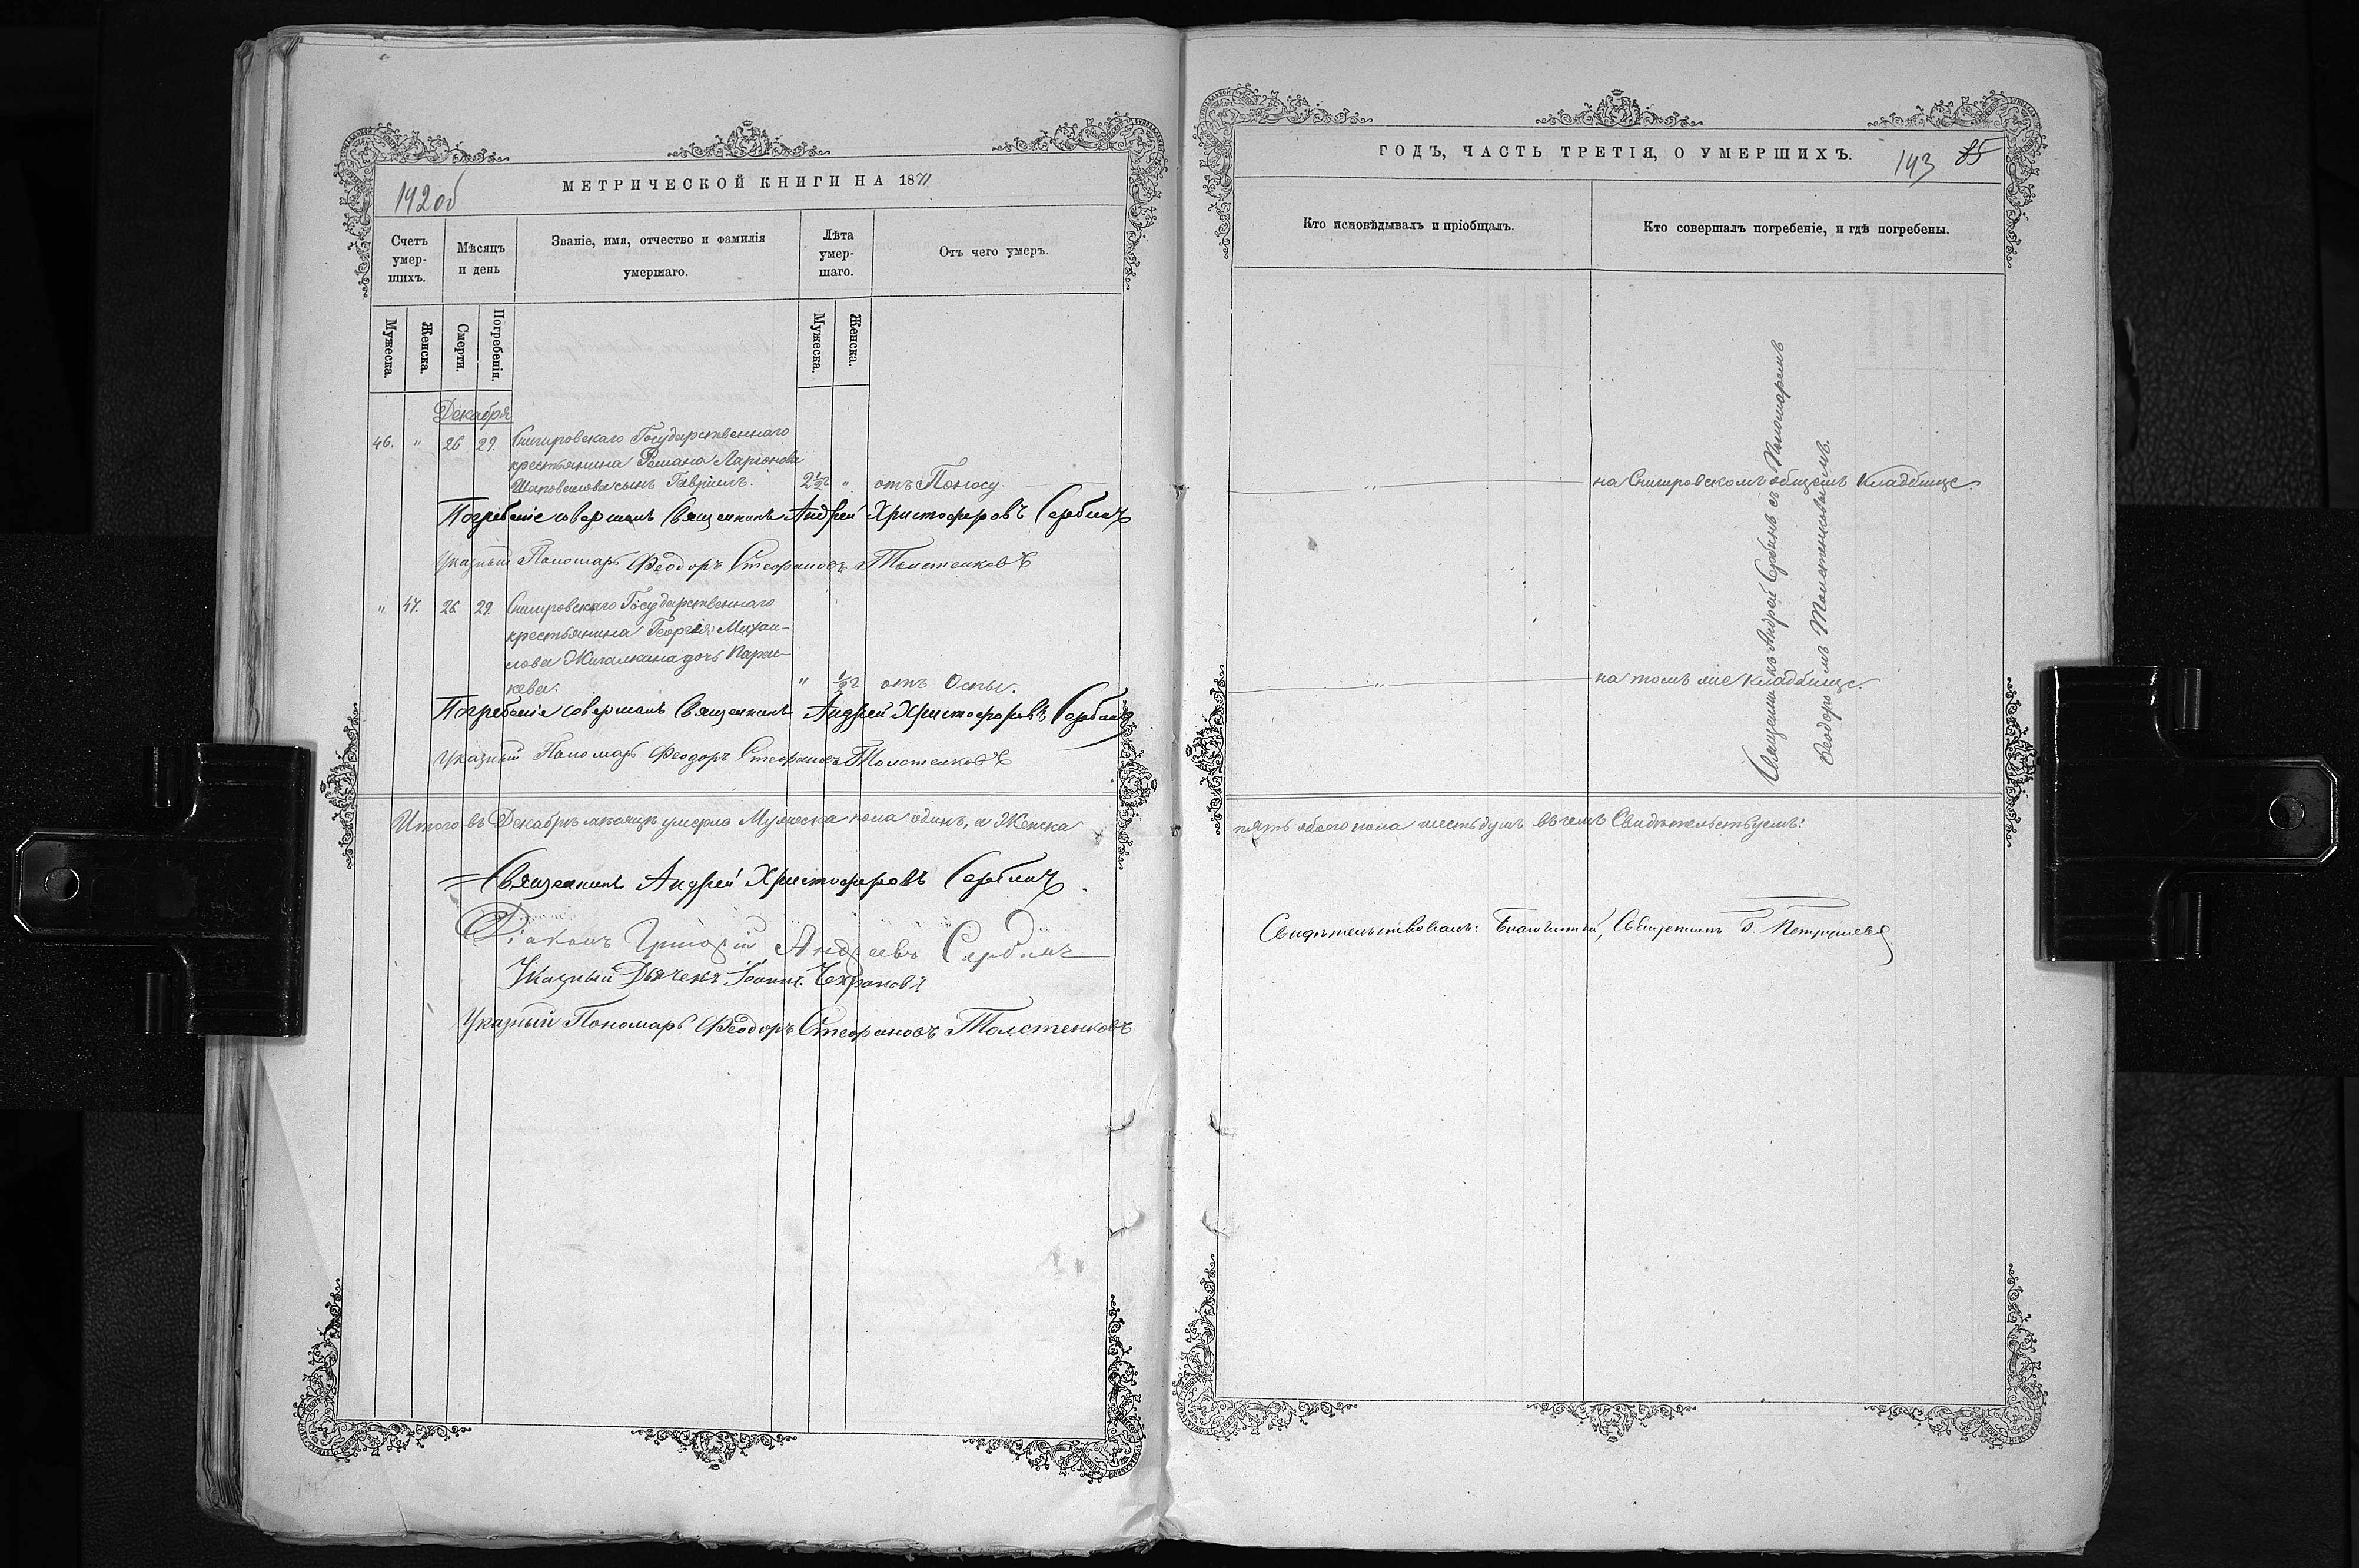 142 об
МЕТРИЧЕСКОЙ КНИГИ НА 1871
Счетъ умер-шихъ.
Мѣсяцъ и день
Званіе, имя, отчество и фамилія умершаго.
Лѣта умер-шаго.
Отъ чего умеръ.
Мужеска.
Женска.
Смерти.
Погребенія.
Мужеска.
Женска.
Декабря
46. " 26 29. Снигировскаго Государственнаго
крестьянина Романа Ларіонова
Шаповалова сынъ Гавріилъ. 2½ г " отъ Поносу
Погребеніе совершалъ Священникъ Андрей Христофоровъ Сербинъ
Указный Пономарь Феодоръ Стефановъ Толстенковъ
" 47. 26 29. Снигировскаго Государственнаго
крестьянина Георгія Михаи-
лова Жигалкина дочь Парас-
кева. " ½ г отъ Оспы.
Погребеніе совершалъ Священникъ Андрей Христофоровъ Сербинъ
Указный Пономарь Феодоръ Стефановъ Толстенковъ
Итого въ Декабрѣ мѣсяцѣ умерло Мужеска пола одинъ, а Женска
Священникъ Андрей Христофоровъ Сербинъ
Діаконъ Григорій Андреевъ Сербинъ
Указный Дьячекъ Іоаннъ
Указный Пономарь Феодоръ Стефановъ Толстенковъ
ГОДЪ, ЧАСТЬ ТРЕТІЯ, О УМЕРШИХЪ.
143 85
Кто исповѣдывалъ и пріобщалъ.
Кто совершалъ погребеніе, и гдѣ погребены.
" на Снигировскомъ общемъ Кладбище.
" на томъ же Кладбище.
Священникъ Андрей Сербинъ съ Пономаремъ
Феодоромъ Толстенковымъ.
пять обоего пола шесть душъ въ чемъ Свидѣтельствуемъ:
Свидѣтельствовалъ: Благочинный, Священникъ